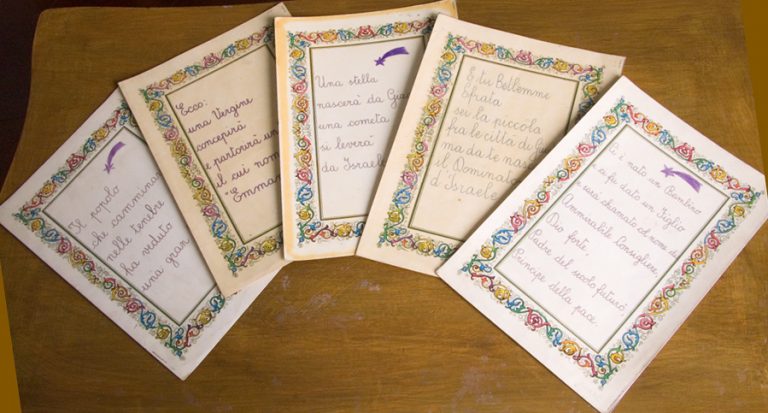 Il popolo
che cammina
nelle tenebre
ha veduto
una gran
Ecco:
una Vergine
concepirà
e partorirà un
il cui nom
"Emman
Una stella
nascerà da Gia
una cometa
si leverà
da Israele
E tu Betlemme
Efrata
sei la piccola
fra le città di G
ma da te nas
il Dominato
d'Israele
Ci è nato un Bambino
e ci fu dato un Figlio
e sarà chiamato col nome di
Ammirabile Consigliere,
Dio forte
Padre del secolo futuro,
Principe della pace.